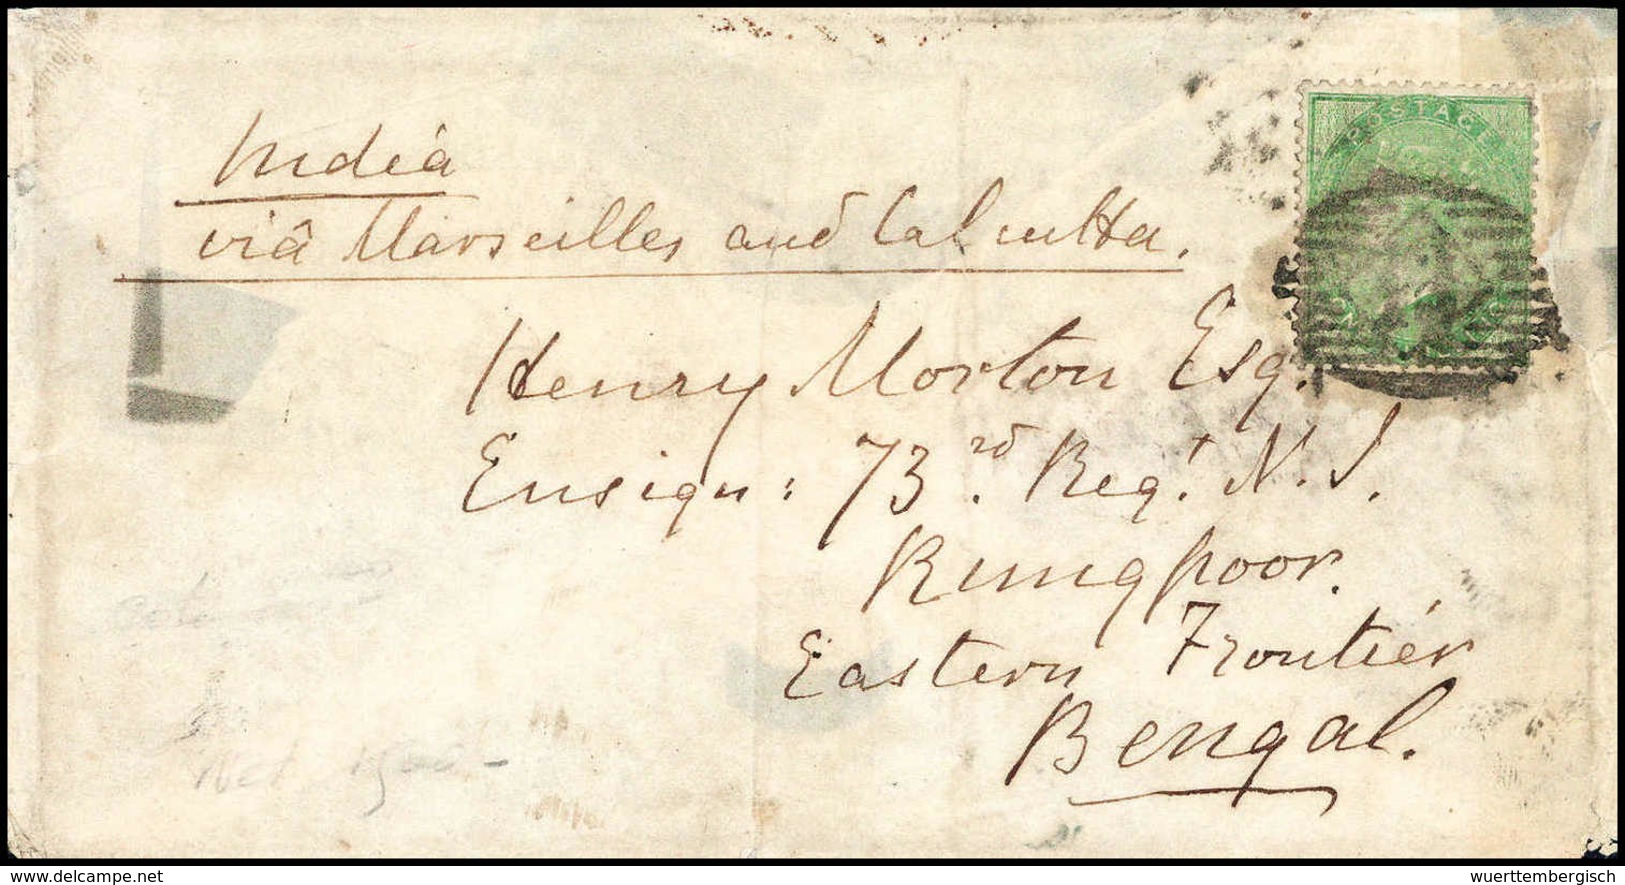 POSTAGE
India
viâ Marseilles and Calcutta.
Henry Morton Esq.
Ensign: 73rd. Regt. N. I.
Rungpoor.
Eastern Frontier
Bengal.
delcampe.net
wuerttembergisch